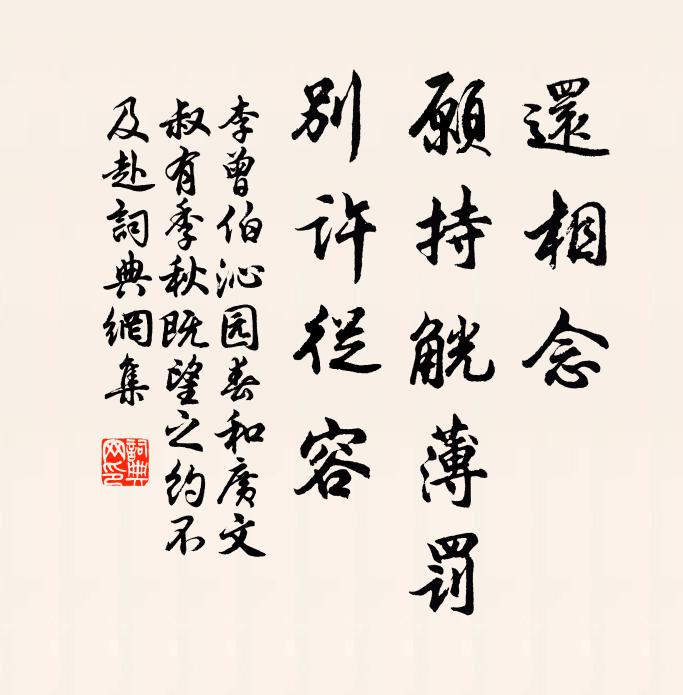 還相念
願持觥薄罰
別許從容
李曾伯沁园春和廣文
叔有季秋既望之約不
及赴詞典網集
詞典
网印